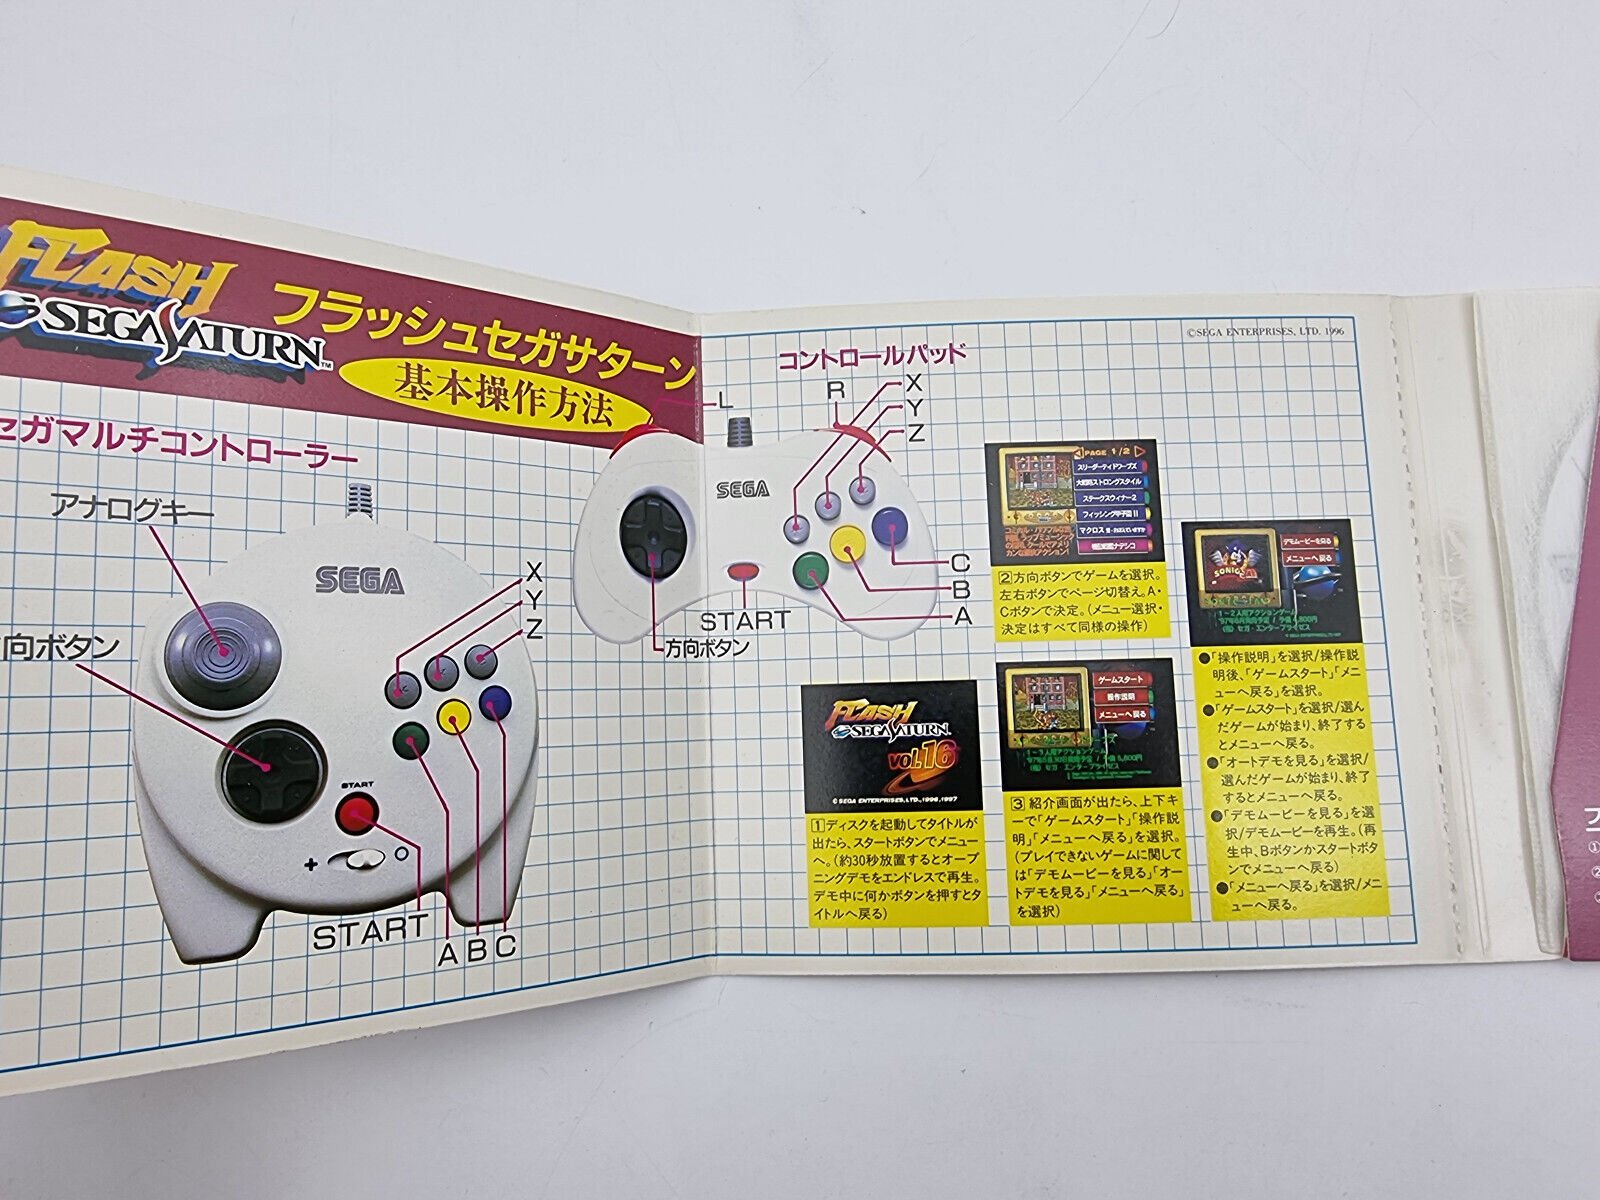 FLASH
SEGA SATURN™
フラッシュセガサターン
基本操作方法
セガマルチコントローラー
アナログキー
方向ボタン
SEGA
X
Y
Z
START
+
START
A B C
コントロールパッド
©SEGA ENTERPRISES, LTD. 1996
L
R
X
Y
Z
SEGA
C
B
A
START
方向ボタン
FLASH
SEGA SATURN
VOL.16
©SEGA ENTERPRISES,LTD.,1996,1997
1 ディスクを起動してタイトルが
出たら、スタートボタンでメニュー
へ。(約30秒放置するとオープ
ニングデモをエンドレスで再生。
デモ中に何かボタンを押すとタ
イトルへ戻る)
PAGE 1/2
大戦略ストロングスタイル
ステークスウィナー2
フィッシング甲子園II
機動戦艦ナデシコ
2 方向ボタンでゲームを選択。
左右ボタンでページ切替え。A・
Cボタンで決定。(メニュー選択・
決定はすべて同様の操作)
ゲームスタート
操作説明
メニューへ戻る
1～2人用アクションゲーム
3 紹介画面が出たら、上下キ
ーで「ゲームスタート」「操作説
明」「メニューへ戻る」を選択。
(プレイできないゲームに関して
は「デモムービーを見る」「オー
トデモを見る」「メニューへ戻る」
を選択)
デモムービーを見る
メニューへ戻る
SONIC
1～2人用アクションゲーム
(株)セガ・エンタープライゼス
●「操作説明」を選択/操作説
明後、「ゲームスタート」「メニ
ューへ戻る」を選択。
●「ゲームスタート」を選択/選ん
だゲームが始まり、終了する
とメニューへ戻る。
●「オートデモを見る」を選択/
選んだゲームが始まり、終了
するとメニューへ戻る。
●「デモムービーを見る」を選
択/デモムービーを再生。(再
生中、Bボタンかスタートボタ
ンでメニューへ戻る)
●「メニューへ戻る」を選択/メニ
ューへ戻る。
①
②